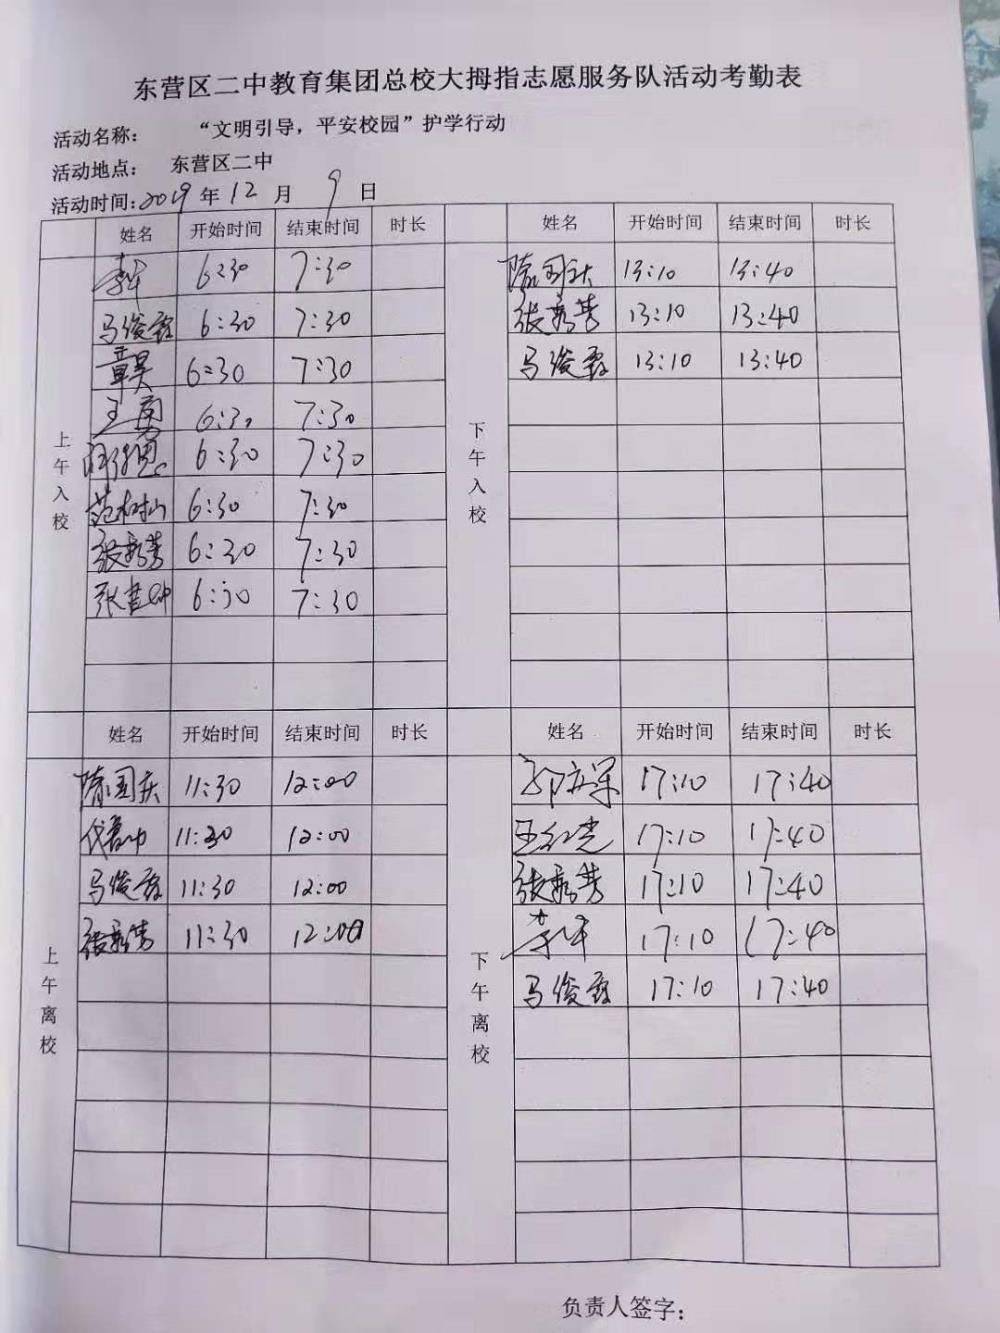 东营区二中教育集团总校大拇指志愿服务队活动考勤表
活动名称： “文明引导，平安校园”护学行动
活动地点： 东营区二中
活动时间：2019年12月9日
姓名 开始时间 结束时间 时长 姓名 开始时间 结束时间 时长
上午入校 下午入校
6:30 7:30 隋国庆 13:10 13:40
马俊霞 6:30 7:30 张秀芳 13:10 13:40
章昊 6:30 7:30 马俊霞 13:10 13:40
王勇 6:30 7:30
6:30 7:30
范树山 6:30 7:30
张秀芳 6:30 7:30
张 6:30 7:30
姓名 开始时间 结束时间 时长 姓名 开始时间 结束时间 时长
上午离校 下午离校
隋国庆 11:30 12:00 17:10 17:40
11:30 12:00 王红光 17:10 17:40
马俊霞 11:30 12:00 张秀芳 17:10 17:40
张秀芳 11:30 12:00 17:10 17:40
马俊霞 17:10 17:40
负责人签字：